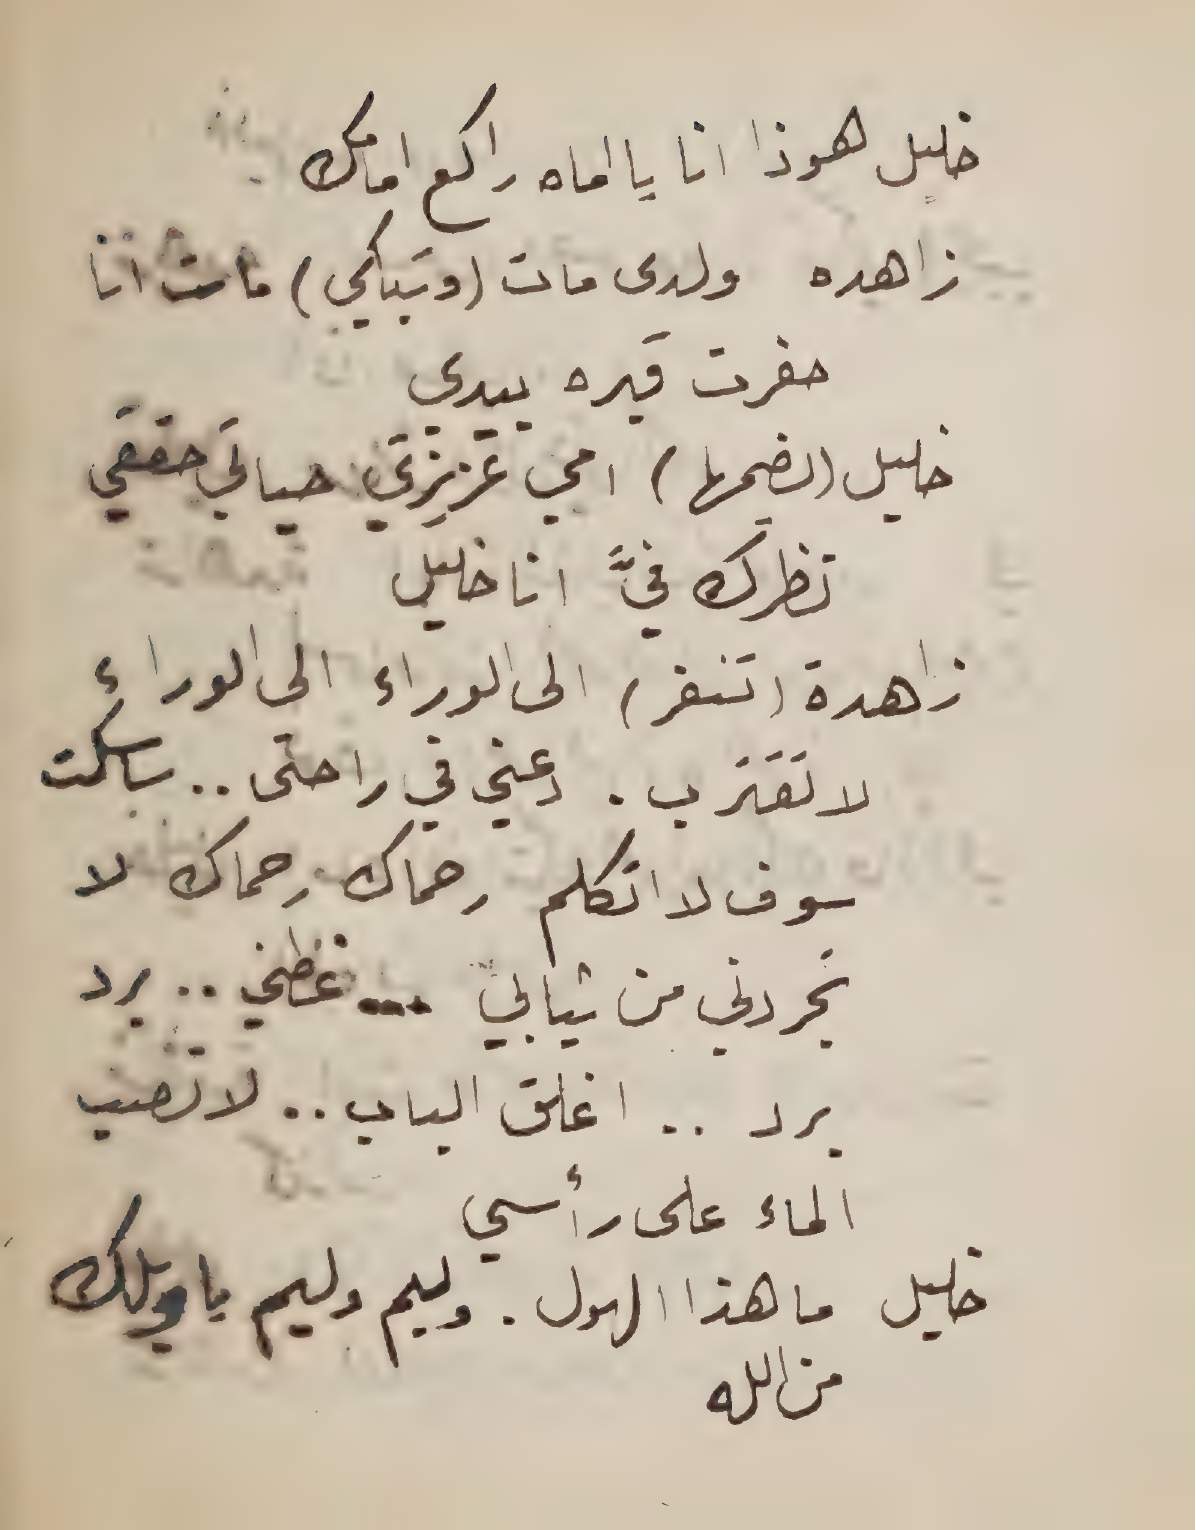 خليل هوذا انا يا اماه راكع امامك
زاهده ولدى مات (وتباكي) مات انا
حفرت قبره بيدي
خليل (يضمها) امي عزيزتي حياتي حققي
نظرك فيَّ انا خليل
زاهدة (تنفر) الى الوراء الى الوراء
لا تقترب . دعني في راحتى .. ساسكت
سوف لا اتكلم رحماك رحماك لا
تجردني من ثيابي ... غطني .. برد
برد .. اغلق الباب .. لا تصب
الماء على رأسي
خليل ما هذا الهول . وليم وليم يا ويلك
من الله